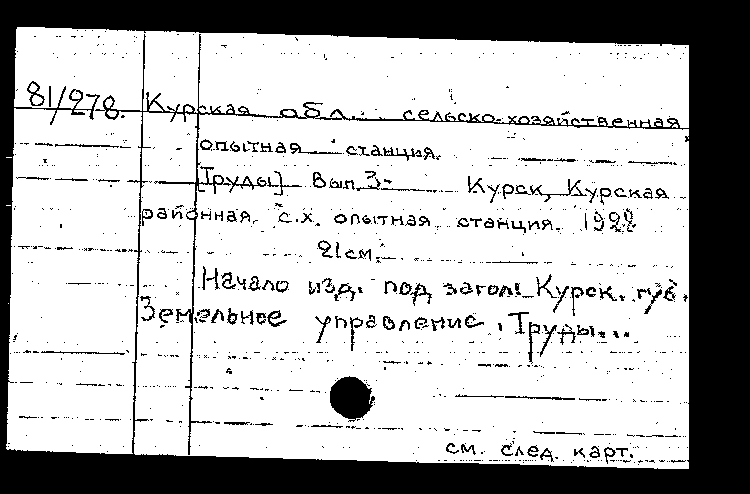 81/278. Курская обл. сельско-хозяйственная
опытная станция.
[Труды] Вып. 3- Курск, Курская
районная с.х. опытная станция. 1928
21 см.
Начало изд. под загол: Курск. губ.
Земельное управление. Труды...
см. след. карт.